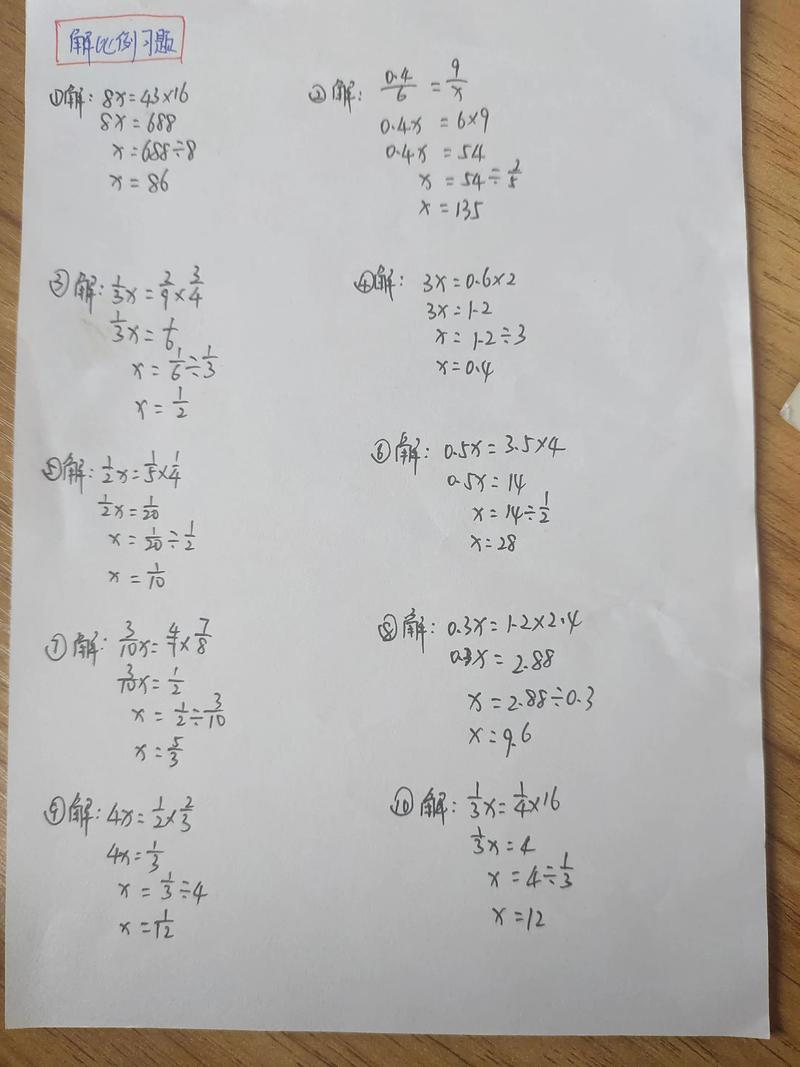 解比例习题
①解: 8x=43×16
8x=688
x=688÷8
x=86
②解: 0.4/6=9/x
0.4x=6×9
0.4x=54
x=54÷2/5
x=135
③解: 1/3x=2/9×3/4
1/3x=1/6
x=1/6÷1/3
x=1/2
④解: 3x=0.6×2
3x=1.2
x=1.2÷3
x=0.4
⑤解: 1/2x=1/5×1/4
1/2x=1/20
x=1/20÷1/2
x=1/10
⑥解: 0.5x=3.5×4
0.5x=14
x=14÷1/2
x=28
⑦解: 3/10x=4/7×7/8
3/10x=1/2
x=1/2÷3/10
x=5/3
⑧解: 0.3x=1.2×2.4
0.3x=2.88
x=2.88÷0.3
x=9.6
⑨解: 4x=1/2×2/3
4x=1/3
x=1/3÷4
x=1/12
⑩解: 1/3x=1/4×16
1/3x=4
x=4÷1/3
x=12